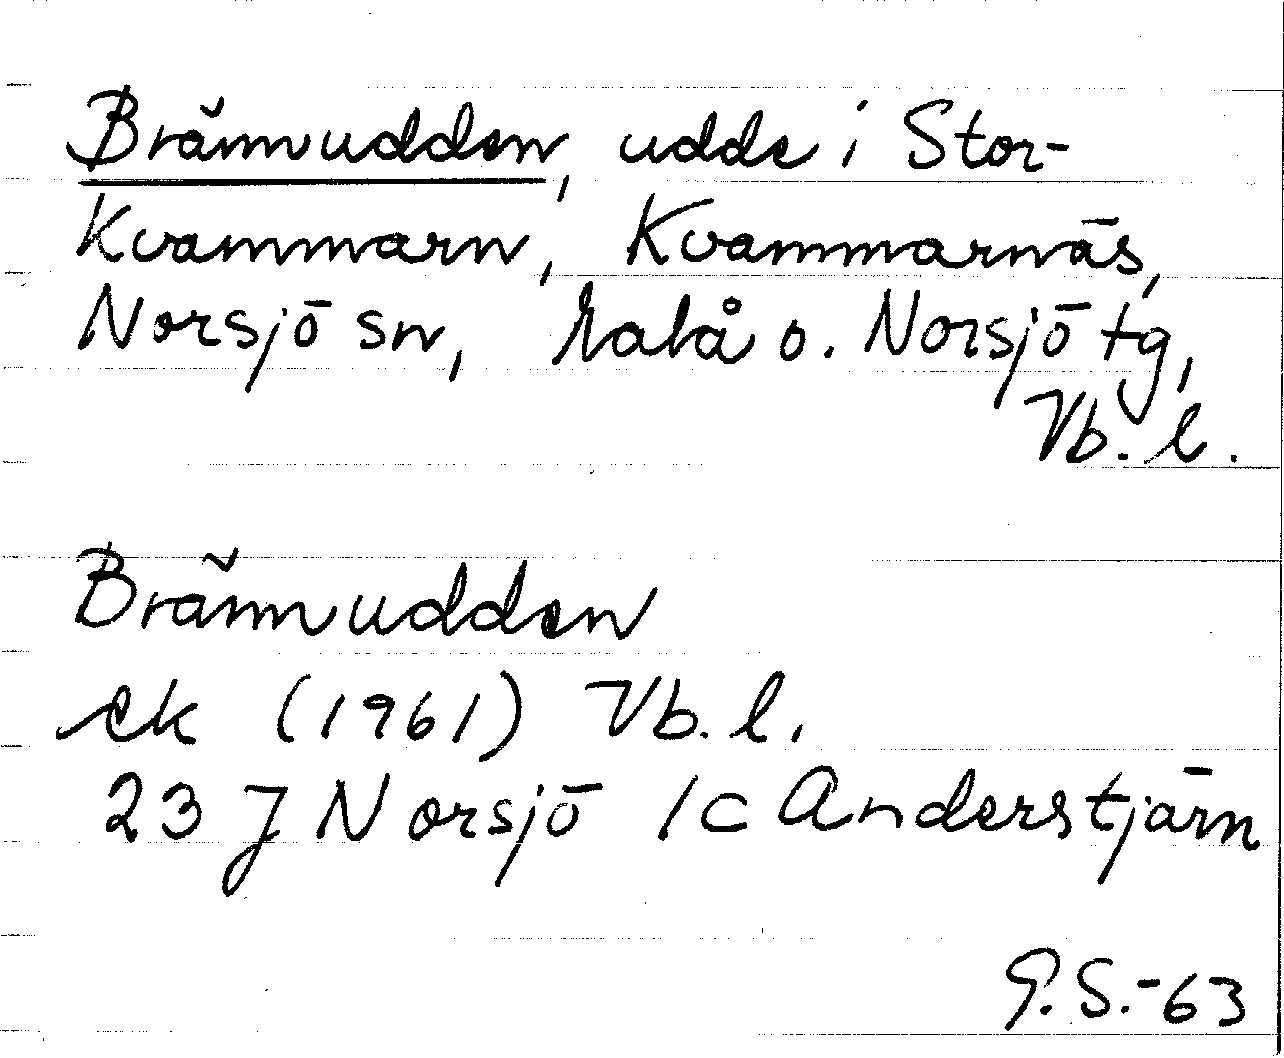 Brännudden, udde i Stor-
Kvammarn, Kvammarnäs,
Norsjö sn, Malå o. Norsjö tg,
Vb. l.
Brännudden
ek (1961) Vb. l.
23 J Norsjö 1c Anderstjärn
G.S.-63